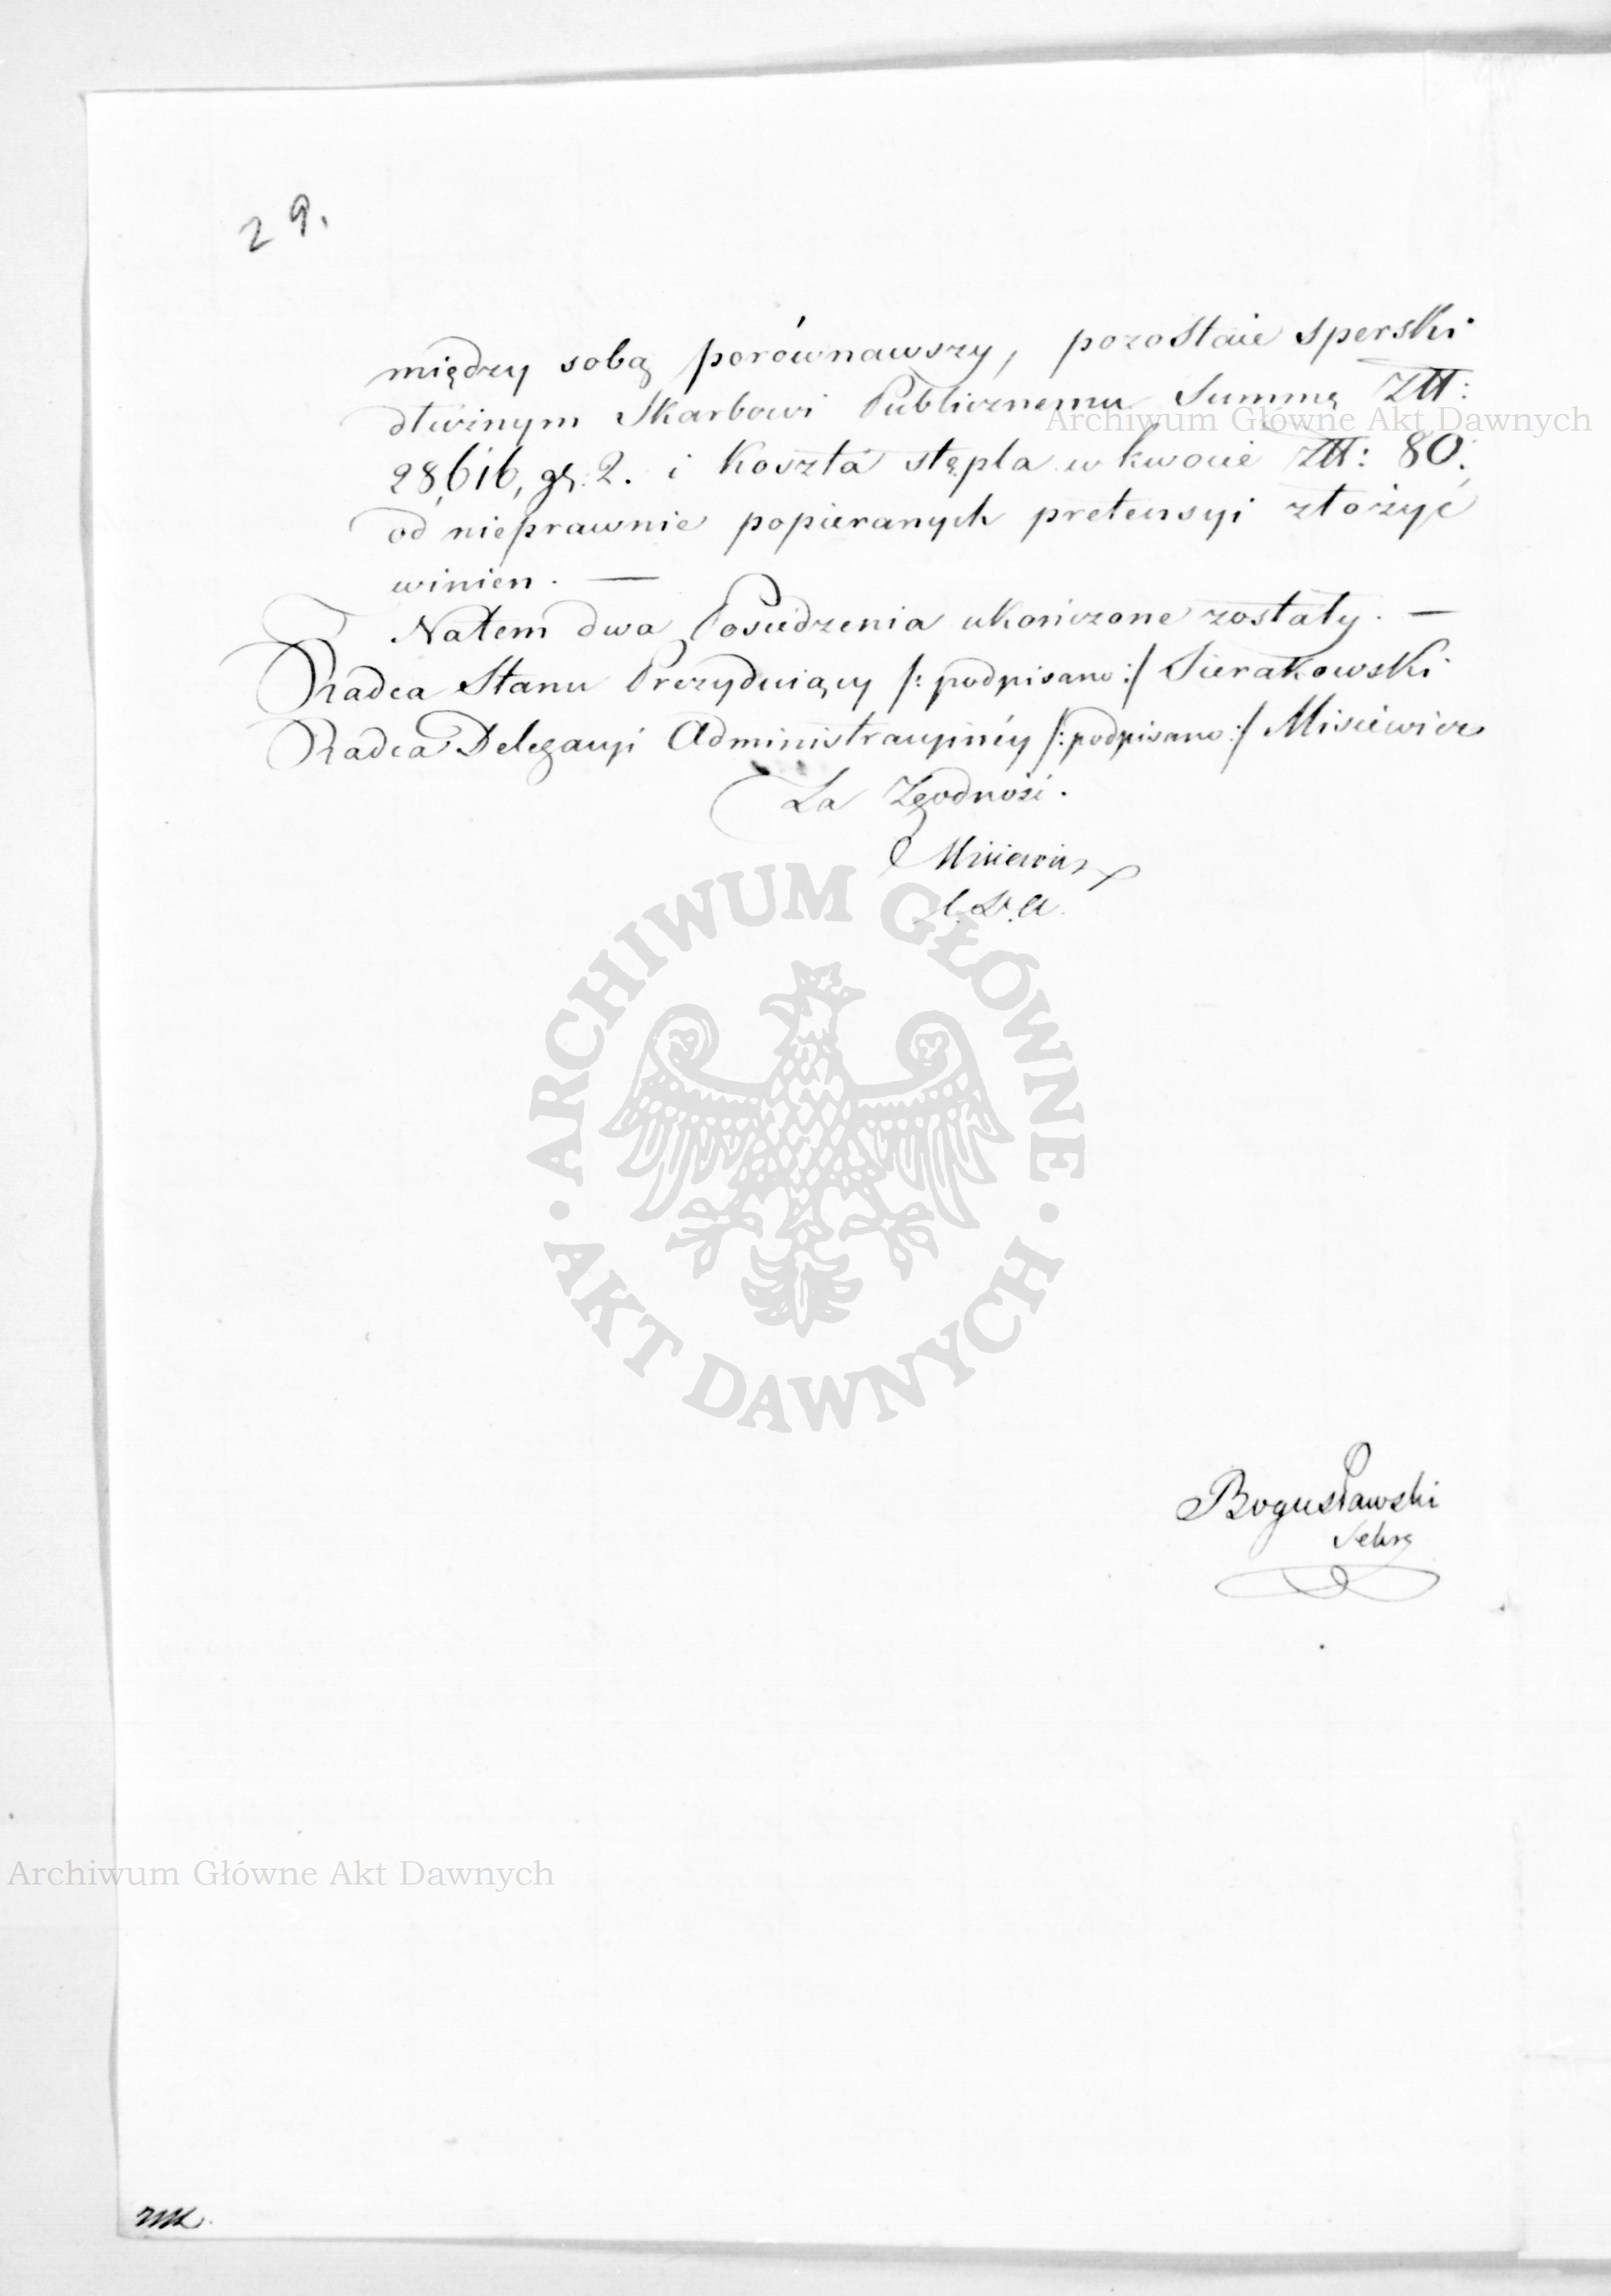 29.
między sobą porównawszy, pozostaie Sperski
dłużnym Skarbowi Publicznemu Summę Złł:
Archiwum Główne Akt Dawnych
28,616, gr. 2. i Koszta stępla w kwocie Złł: 80.
od nieprawnie popieranych pretensyi złożyć
winien. —
Natem dwa Posiedzenia ukończone zostały. —
Radca Stanu Prezyduiący /: podpisano :/ Sierakowski
Radca Delegacyi Administracyinéy /: podpisano :/ Misiewicz
Za Zgodność.
Misiewicz
ARCHIWUM GŁÓWNE
AKT DAWNYCH
Bogusławski
Sekrę
Archiwum Główne Akt Dawnych